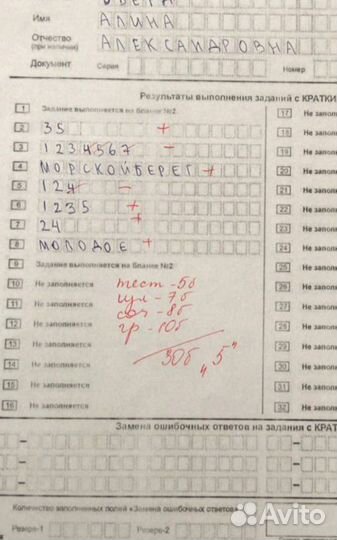 Имя АЛИНА
Отчество АЛЕКСАНДРОВНА
(при наличии)
Документ Серия Номер
Результаты выполнения заданий с КРАТКИ
1 Задание выполняется на бланке №2. 17 Не запол
2 35 + 18 Не запол
3 1234567 - 19 Не запол
4 МОРСКОЙБЕРЕГ + 20 Не запол
5 124 - 21 Не запол
6 1235 + 22 Не запол
7 24 + 23 Не запол
8 МОЛОДОЕ + 24 Не запол
9 Задание выполняется на бланке №2 25 Не запол
10 Не заполняется тест - 5б 26 Не запол
11 Не заполняется - 7б 27 Не запол
12 Не заполняется соч - 8б 28 Не запол
13 Не заполняется гр - 10б 29 Не запол
14 Не заполняется 30б „5” 30 Не запол
15 Не заполняется 31 Не запол
16 Не заполняется 32 Не запол
Замена ошибочных ответов на задания с КРАТ
Количество заполненных полей «Замена ошибочных ответов»
Резерв-1 Резерв-2
Avito